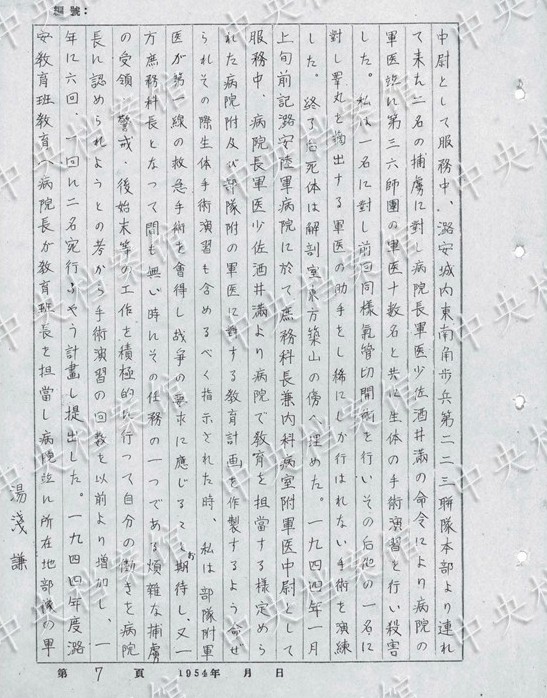 編號：
中尉として服務中、潞安城内東南角步兵第二二三聯隊本部より連れ
て来た二名の捕虜に対し病院長軍医少佐酒井満の命令により病院の
軍医並に第三六師團の軍医十数名と共に生体の手術演習を行い殺害
した。私は一名に対し前回同様氣管切開術を行いその后他の一名に
対し睾丸を摘出する軍医の助手をし稀にしか行はれない手術を演練
した。終了后死体は解剖室東方築山の傍へ埋めた。一九四四年一月
上旬前記潞安陸軍病院に於て庶務科長兼内科病室附軍医中尉として
服務中、病院長軍医少佐酒井満より病院で教育を担当する様定めら
れた病院附及び部隊附の軍医に対する教育計画を作製するよう命ぜ
られその際生体手術演習も含めるべく指示された時、私は部隊附軍
医が第一線の救急手術を会得し战争の要求に應じることを期待し、又一
方庶務科長となつて間も無い時にその任務の一つである煩雑な捕虜
の受領、警戒、後始末等の工作を積極的に行つて自分の働きを病院
長に認められようとの考から手術演習の回数を以前より増加し、一
年に六回、一回に二名宛行うやう計畫し提出した。一九四四年度潞
安教育班教育へ病院長が教育班長を担当し病院並に所在地部隊の軍
湯淺謙
第 7 頁 1954年 月 日
中央档案馆